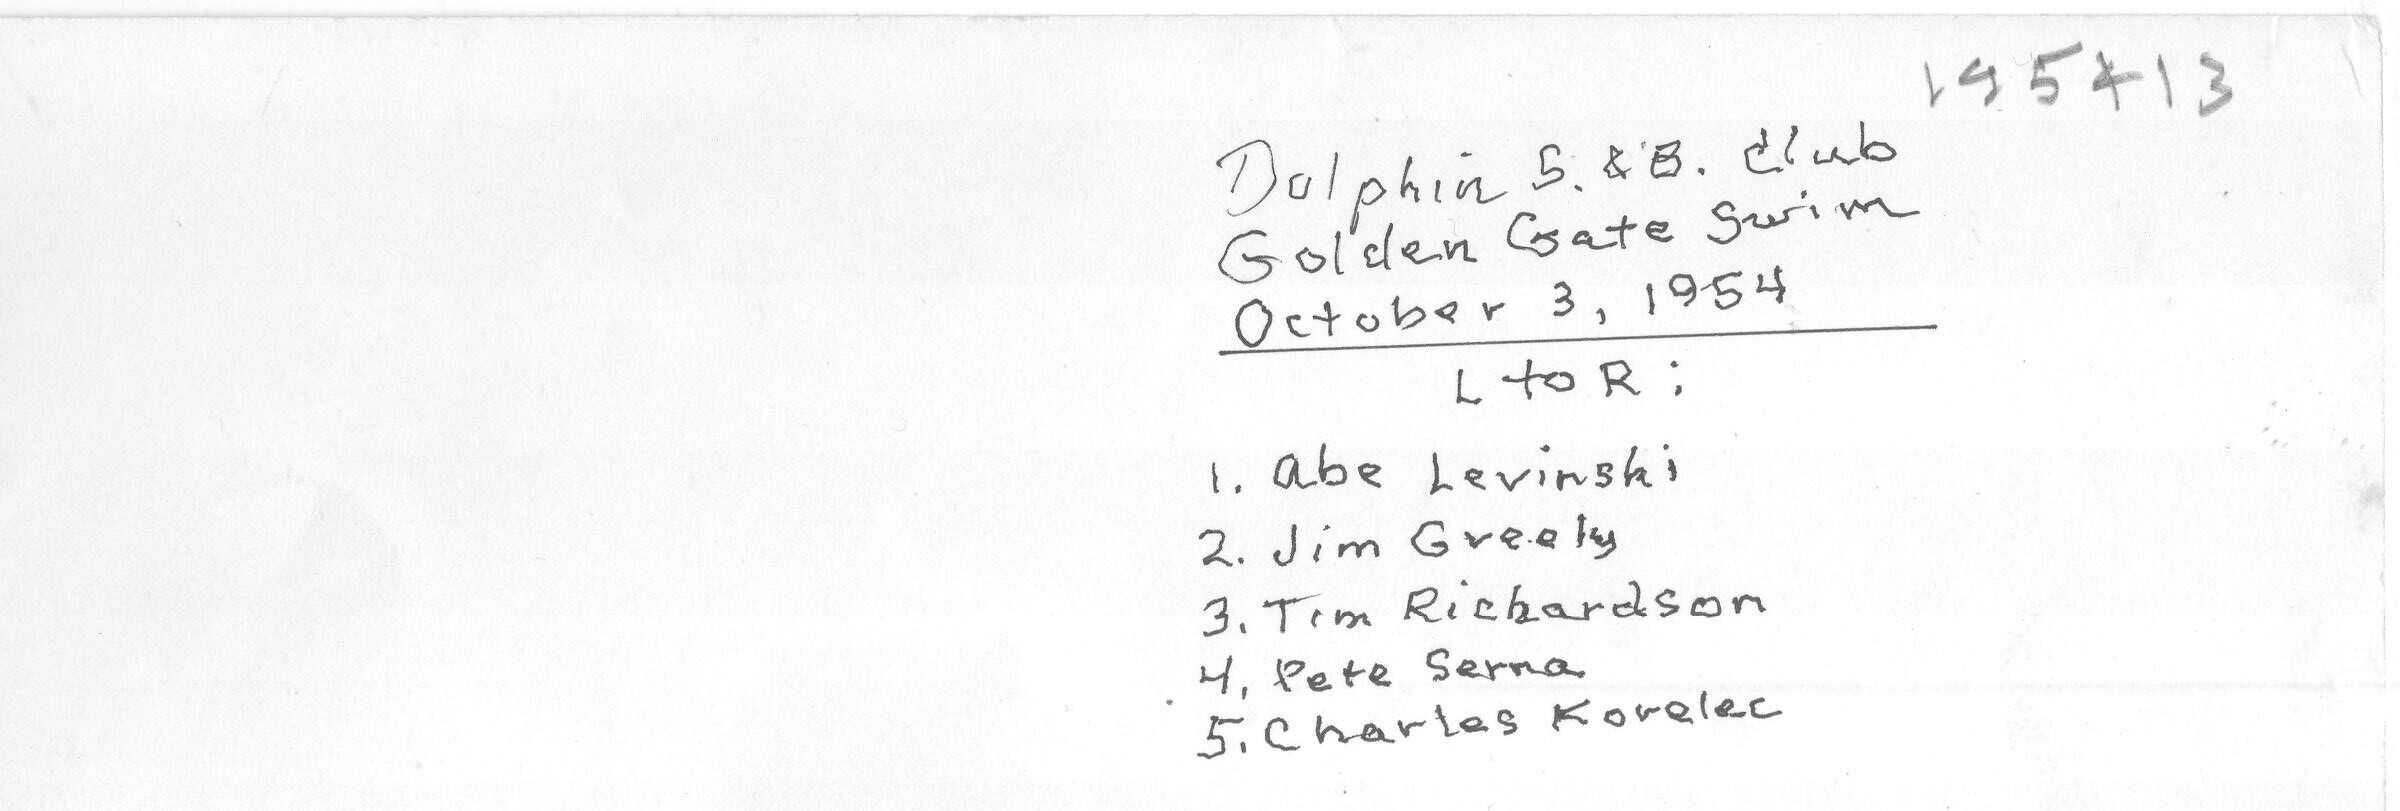 195413
Dolphin S. & B. Club
Golden Gate Swim
October 3, 1954
L to R:
1. Abe Levinski
2. Jim Greely
3. Tim Richardson
4. Pete Serna
5. Charles Kovelec